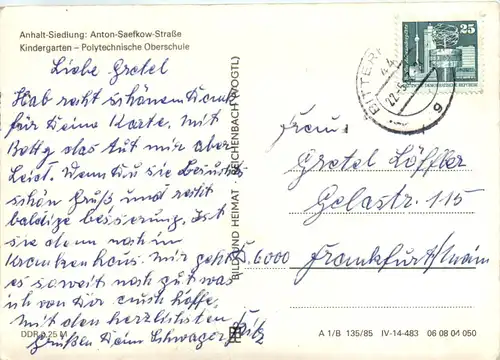 Anhalt-Siedlung: Anton-Saefkow-Straße
Kindergarten – Polytechnische Oberschule
Liebe Gretel
Hab recht schönen Dank
für Deine Karte. Mit
das tut mir aber
Leid. Wenn Du sie besuchst
schön Gruß und
baldige besserung. Ist
sie denn noch im
Krankenhaus. Mir geht
es soweit noch gut was
ich von Dir auch hoffe.
Mit den herzlichsten
Grüßen Dein Schwager Fritz
DDR 0,25 M
BILD UND HEIMAT · REICHENBACH (VOGTL)
25
BITTERF
44
9
Frau
Gretel Löffler
Gelastr. 115
6000 Frankfurt/Main
A 1/B 135/85 IV-14-483 06 08 04 050